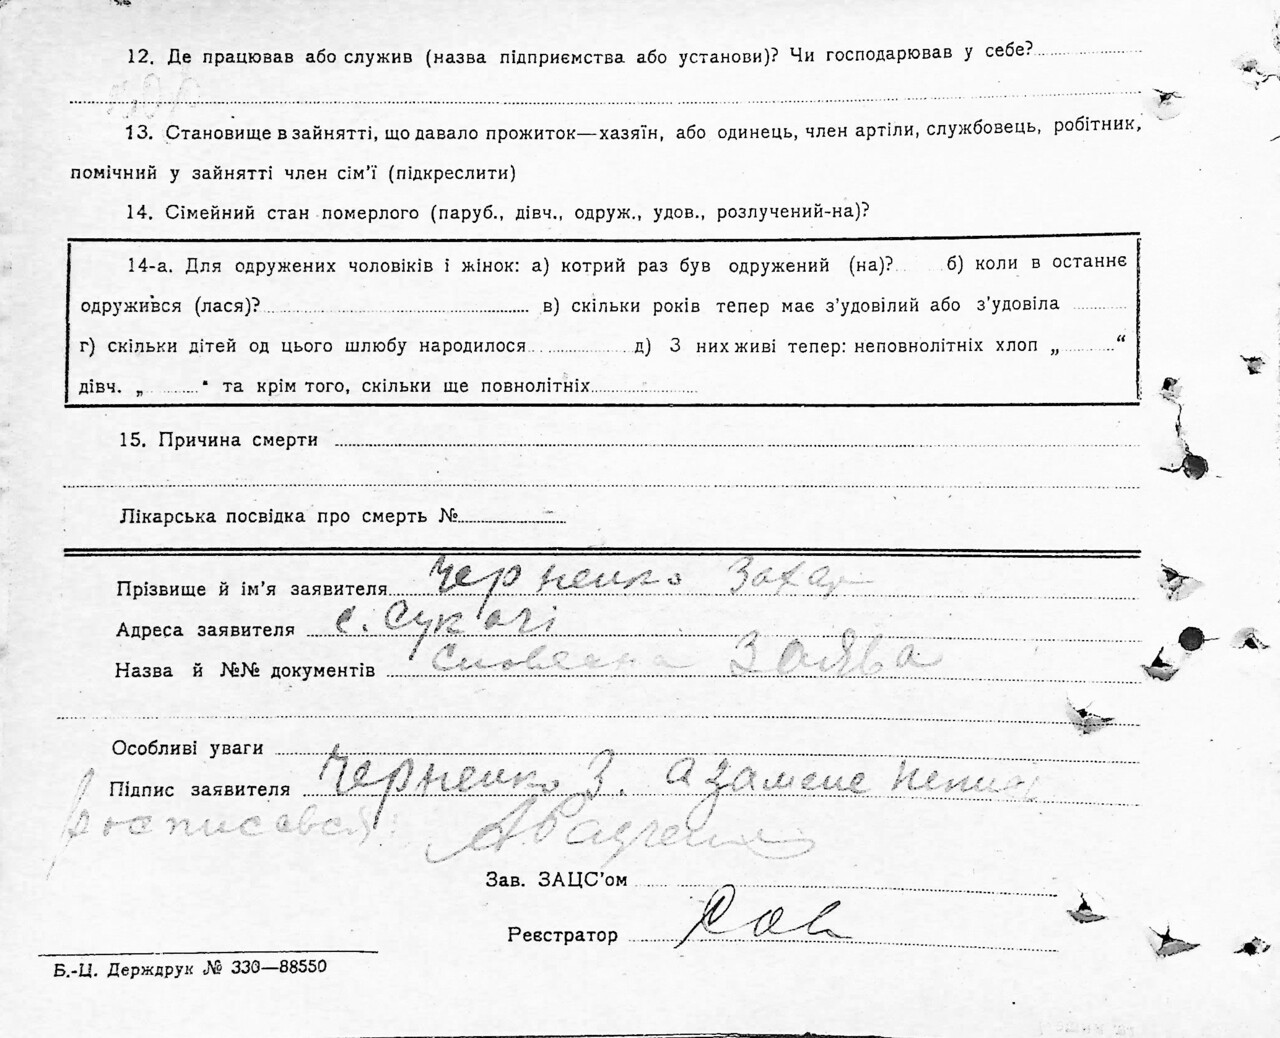 12. Де працював або служив (назва підприємства або установи)? Чи господарював у себе?
13. Становище в зайнятті, що давало прожиток—хазяїн, або одинець, член артіли, службовець, робітник,
помічний у зайнятті член сім'ї (підкреслити)
14. Сімейний стан померлого (паруб., дівч., одруж., удов., розлучений-на)?
14-а. Для одружених чоловіків і жінок: а) котрий раз був одружений (на)? б) коли в останнє
одружився (лася)? в) скільки років тепер має з'удовілий або з'удовіла
г) скільки дітей од цього шлюбу народилося д) З них живі тепер: неповнолітніх хлоп „ “
дівч. „ “ та крім того, скільки ще повнолітніх
15. Причина смерти
Лікарська посвідка про смерть №
Прізвище й ім'я заявителя Черненко Захар
Адреса заявителя с. Сукачі
Назва й №№ документів Словесна Заява
Особливі уваги
Підпис заявителя Черненко З. а замене
росписався:
Зав. ЗАЦС'ом
Реєстратор
Б.-Ц. Держдрук № 330—88550